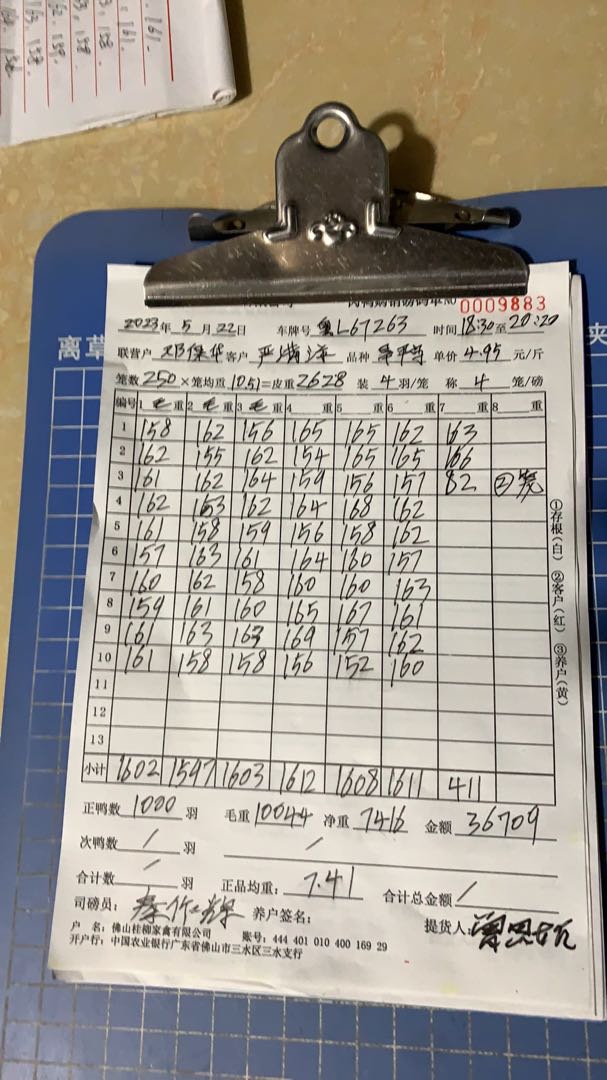 0009883
2023年 5月 22日 车牌号 粤L67263 时间 18:30至20:20
联营户 邓保华 客户 品种 单价 4.95 元/斤
笼数 250 ×笼均重 10.51=皮重 2628 装 4 羽/笼 称 4 笼/磅
编号 1 毛 重 2 毛 重 3 毛 重 4 重 5 重 6 重 7 重 8 重
1 158 162 156 165 165 162 163
2 162 155 162 154 165 165 166
3 161 162 164 159 156 157 82 ②笼
4 162 153 162 164 168 162
5 161 158 159 156 158 162
6 157 163 161 164 160 157
7 160 162 158 160 160 163
8 159 161 160 165 167 161
9 161 163 163 169 157 162
10 161 158 158 156 152 160
11
12
13
小计 1602 1597 1603 1612 1608 1611 411
正鸭数 1000 羽 毛重 10044 净重 7416 金额 36709
次鸭数 / 羽 /
合计数 / 羽 正品均重: 7.41 合计总金额 /
司磅员: 养户签名: 提货人
户 名: 佛山桂柳家禽有限公司 账号: 444 401 010 400 169 29
开户行: 中国农业银行广东省佛山市三水区三水支行
①存根(白) ②客户(红) ③养户(黄)
离草